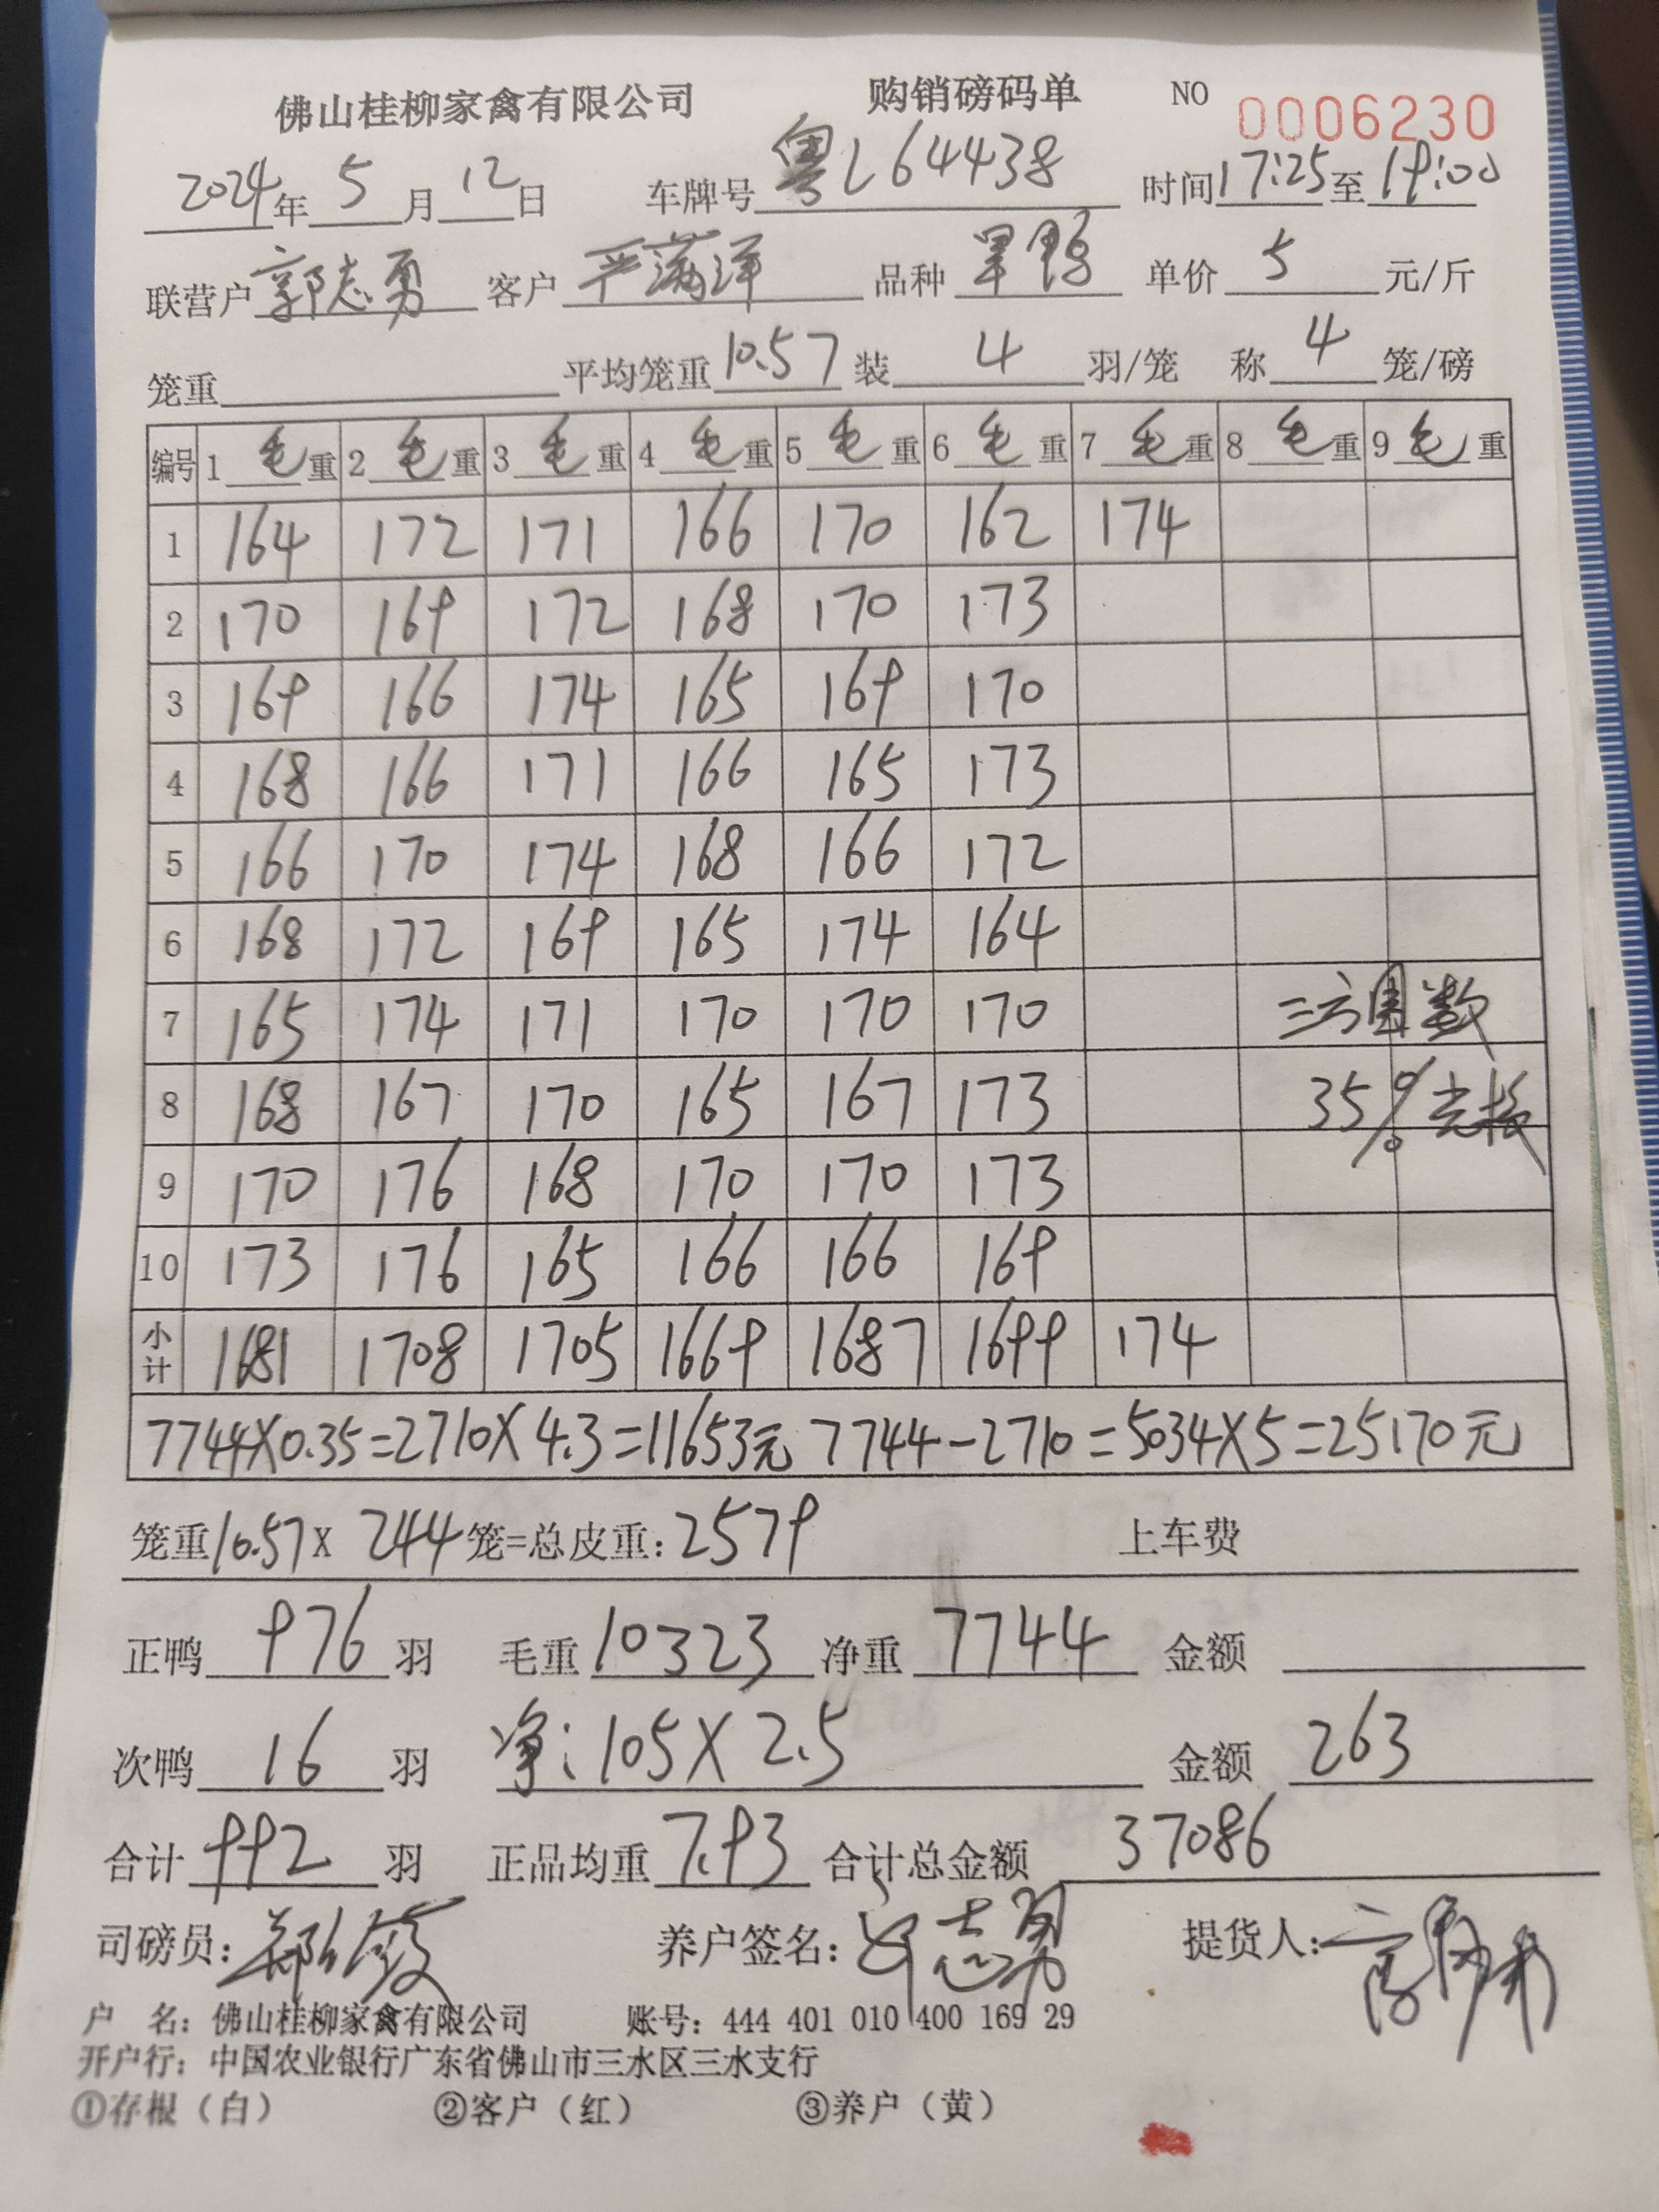 佛山桂柳家禽有限公司 购销磅码单 NO 0006230
2024年 5 月 12 日 车牌号 粤L64438 时间 17:25 至 19:00
联营户 郭志勇 客户 严满洋 品种 旱鸭 单价 5 元/斤
笼重 平均笼重 10.57 装 4 羽/笼 称 4 笼/磅
编号 1 毛重 2 毛重 3 毛重 4 毛重 5 毛重 6 毛重 7 毛重 8 毛重 9 毛重
1 164 172 171 166 170 162 174
2 170 169 172 168 170 173
3 169 166 174 165 169 170
4 168 166 171 166 165 173
5 166 170 174 168 166 172
6 168 172 169 165 174 164
7 165 174 171 170 170 170 三方 数
8 168 167 170 165 167 173 35%
9 170 176 168 170 170 173
10 173 176 165 166 166 169
小计 1681 1708 1705 1669 1687 1699 174
7744X0.35=2710X4.3=11653元 7744-2710=5034X5=25170元
笼重10.57X 244 笼=总皮重: 2579 上车费
正鸭 976 羽 毛重 10323 净重 7744 金额
次鸭 16 羽 净: 105X2.5 金额 263
合计 992 羽 正品均重 7.93 合计总金额 37086
司磅员: 养户签名: 志勇 提货人:
户 名: 佛山桂柳家禽有限公司 账号: 444 401 010 400 169 29
开户行: 中国农业银行广东省佛山市三水区三水支行
①存根(白) ②客户(红) ③养户(黄)